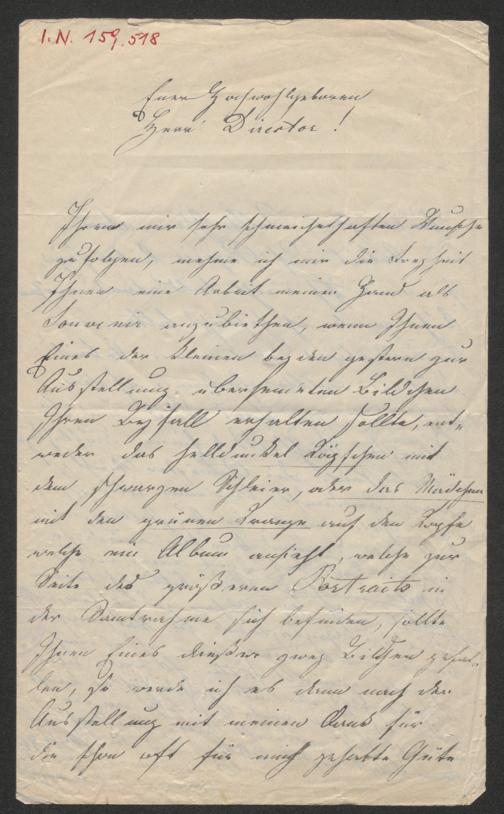 I.N. 159.518
Euer Hochwohlgeboren
Herr Director!
Ihrem mir sehr schmeichelhaften Wunsche
zufolgen, nehme ich mir die Freyheit
Ihnen eine Arbeit meiner Hand als
Souvenir anzubiethen, wenn Ihnen
Eines der kleinen beyden gestern zur
Ausstellung übersendeten Bildchen
Ihren Beyfall erhalten sollte, ent-
weder das helldunkel Köpfchen mit
dem schwarzen Schleier, oder das Mädchen
mit dem grünen Kranze auf dem Kopfe
welche ein Album ansieht, welche zur
Seite des größeren Portraits in
der Samtrahme sich befinden, sollte
Ihnen Eines dieser zwey Bildchen gefal-
len, so werde ich es dann nach der
Ausstellung mit meinen Dank für
die schon oft für mich gehabte Güte